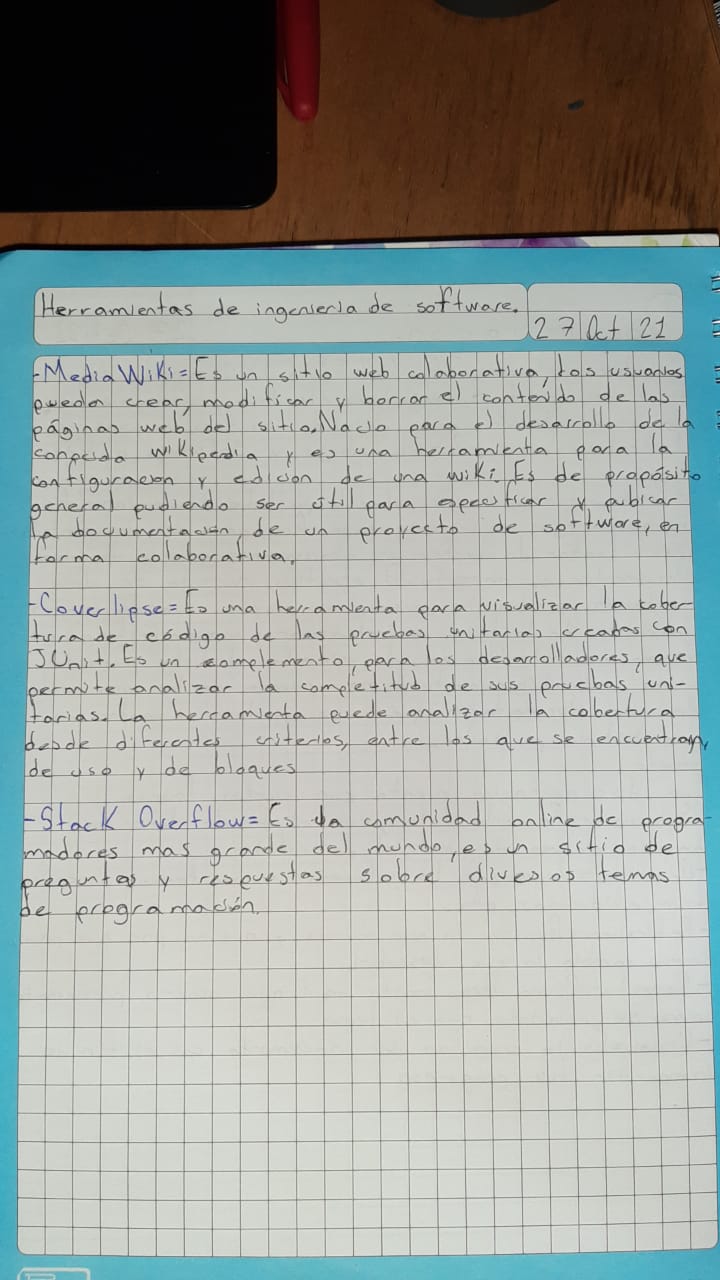 Herramientas de ingenieria de software.
27 Oct 21
-MediaWiki= Es un sitio web colaborativa, los usuarios
pueden crear, modificar y borrar el contenido de las
páginas web del sitio. Nacio para el desarrollo de la
conocida wikipedia y es una herramienta para la
configuracion y edicion de una wiki. Es de propósito
general pudiendo ser útil para especificar y publicar
la documentación de un proyecto de software, en
forma colaborativa.
-Coverlipse= Es una herramienta para visualizar la cober-
tura de código de las pruebas unitarias creadas con
JUnit. Es un complemento, para los desarrolladores, que
permite analizar la completitub de sus pruebas uni-
tarias. La herramienta puede analizar la cobertura
desde diferentes criterios, entre los que se encuentran,
de uso y de bloques
-Stack Overflow= Es la comunidad online de progra-
madores mas grande del mundo, es un sitio de
preguntas y respuestas sobre divesos temas
de programación.